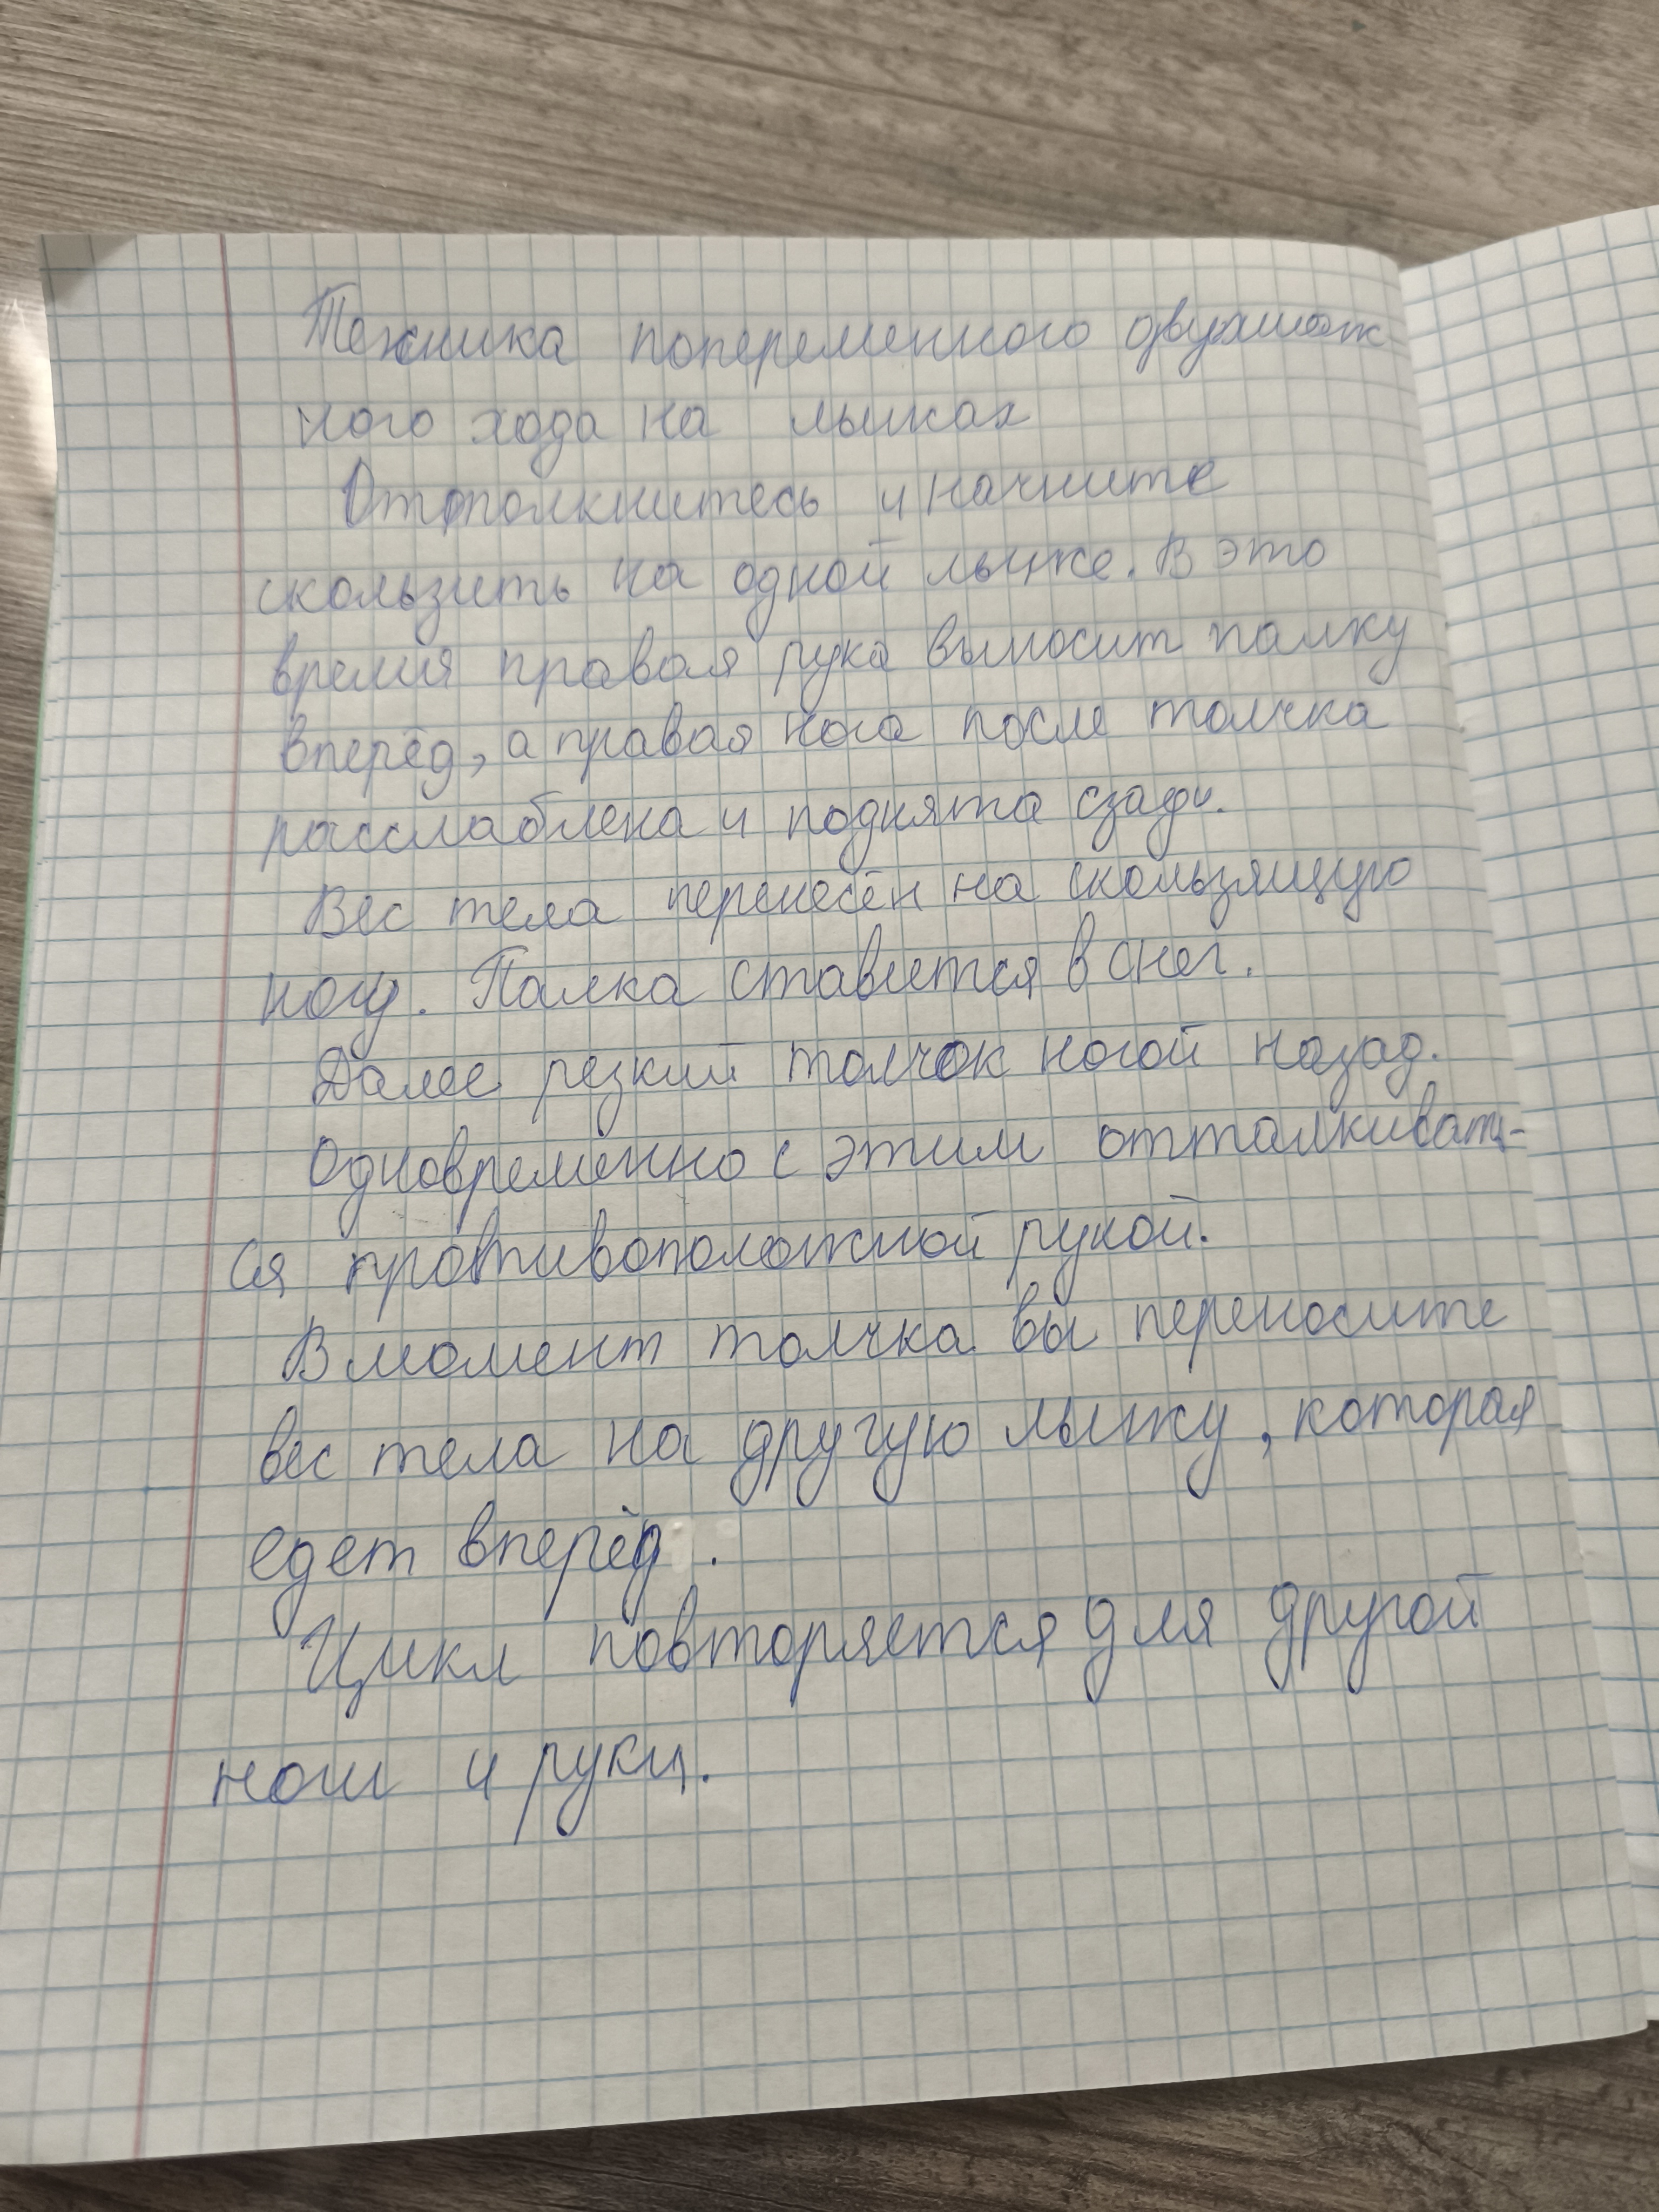 Техника попеременного двухшаж-
ного хода на лыжах
Оттолкнитесь и начните
скользить на одной лыже. В это
время правая рука выносит палку
вперёд, а правая нога после толчка
расслаблена и поднята сзади.
Вес тела перенесён на скользящую
ногу. Палка ставится в снег.
Далее резкий толчок ногой назад.
Одновременно с этим отталкивать-
ся противоположной рукой.
В момент толчка вы переносите
вес тела на другую лыжу, которая
едет вперёд.
Цикл повторяется для другой
ноги и руки.